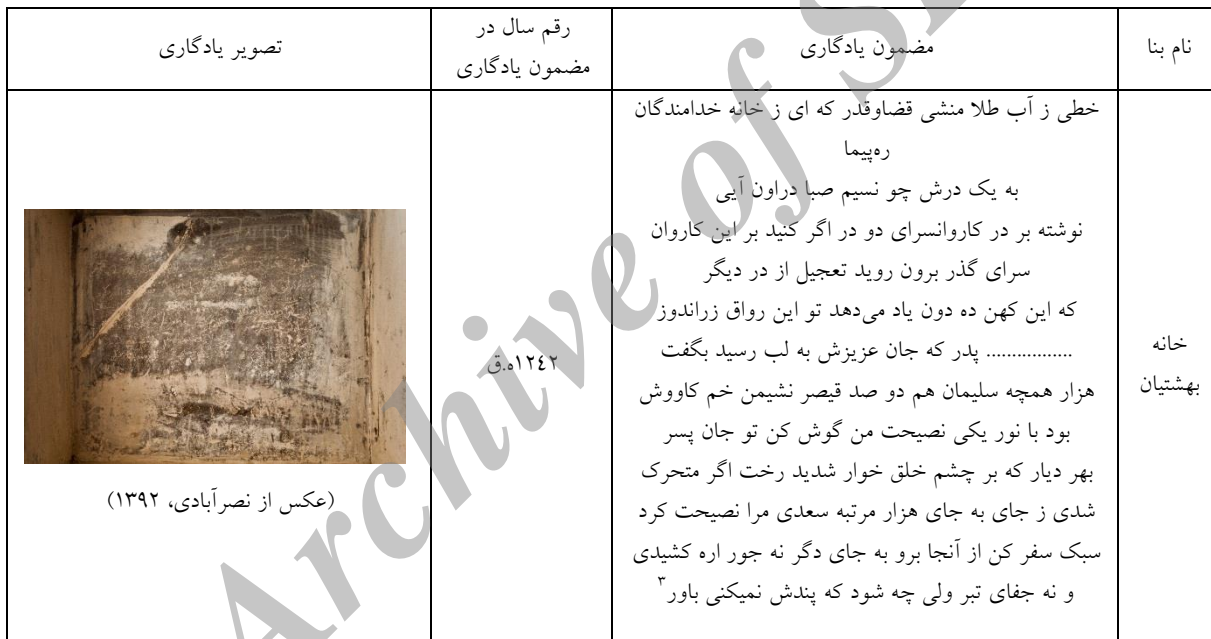 نام بنا
مضمون یادگاری
رقم سال در
مضمون یادگاری
تصویر یادگاری
خانه
بهشتیان
خطی ز آب طلا منشی قضاوقدر که ای ز خانه خدامندگان
ره‌پیما
به یک درش چو نسیم صبا دراون آیی
نوشته بر در کاروانسرای دو در اگر کنید بر این کاروان
سرای گذر برون روید تعجیل از در دیگر
که این کهن ده دون یاد می‌دهد تو این رواق زراندوز
................. پدر که جان عزیزش به لب رسید بگفت
هزار همچه سلیمان هم دو صد قیصر نشیمن خم کاووش
بود با نور یکی نصیحت من گوش کن تو جان پسر
بهر دیار که بر چشم خلق خوار شدید رخت اگر متحرک
شدی ز جای به جای هزار مرتبه سعدی مرا نصیحت کرد
سبک سفر کن از آنجا برو به جای دگر نه جور اره کشیدی
و نه جفای تبر ولی چه شود که پندش نمیکنی باور۳
۱۲۴۲ه.ق
(عکس از نصرآبادی، ۱۳۹۲)
Archive of S